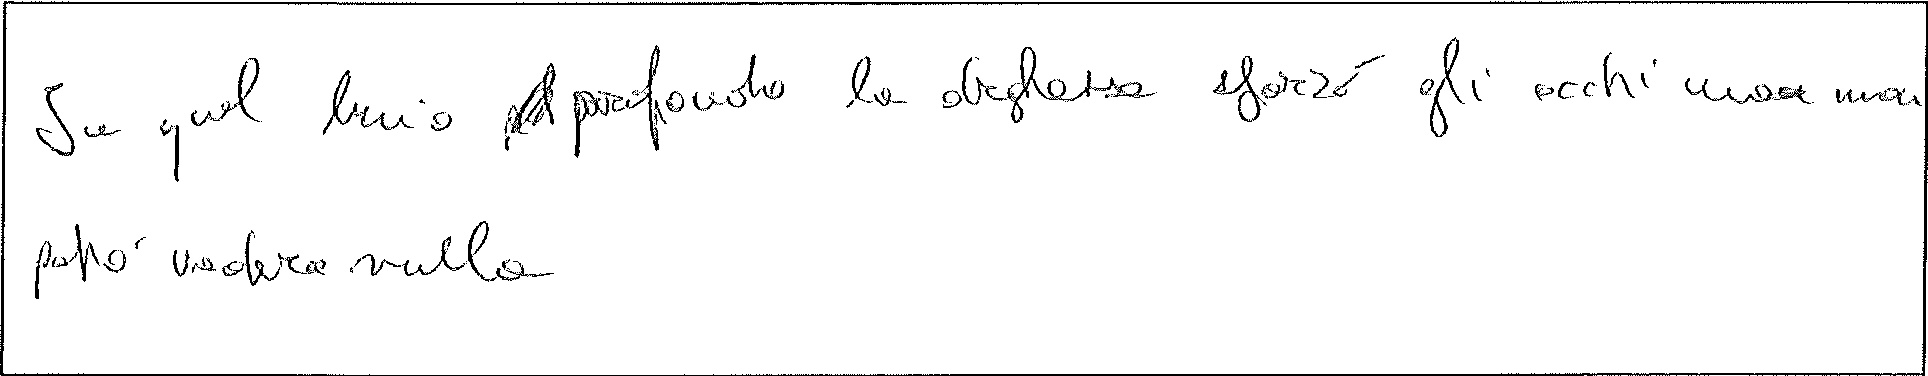 In quel buio profondo la draghessa sforzó gli occhi ma non
potió vedere nulla